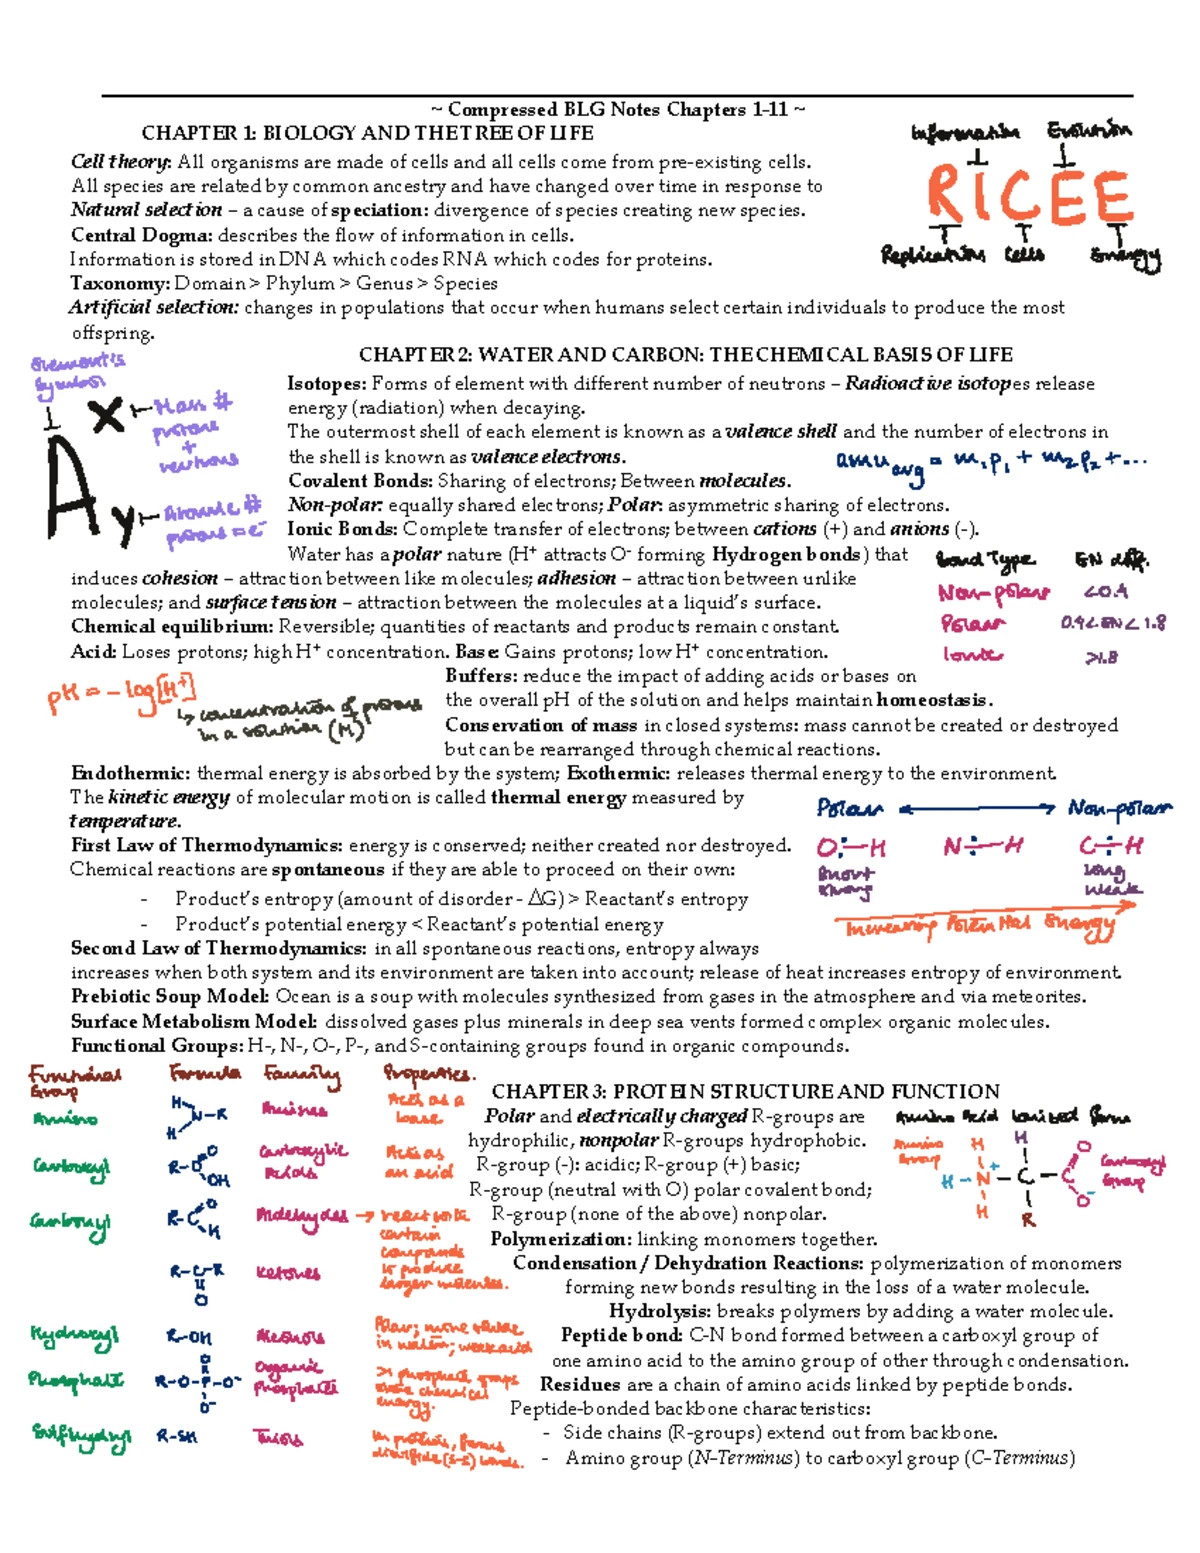 ~ Compressed BLG Notes Chapters 1-11 ~
CHAPTER 1: BIOLOGY AND THE TREE OF LIFE
Cell theory: All organisms are made of cells and all cells come from pre-existing cells.
All species are related by common ancestry and have changed over time in response to
Natural selection – a cause of speciation: divergence of species creating new species.
Central Dogma: describes the flow of information in cells.
Information is stored in DNA which codes RNA which codes for proteins.
Taxonomy: Domain > Phylum > Genus > Species
Artificial selection: changes in populations that occur when humans select certain individuals to produce the most
offspring.
Information Evolution
RICEE
Replication Cells Energy
CHAPTER 2: WATER AND CARBON: THE CHEMICAL BASIS OF LIFE
Element's
Symbol
X Mass #
protons
+
neutrons
A
y Atomic #
protons = e-
Isotopes: Forms of element with different number of neutrons – Radioactive isotopes release
energy (radiation) when decaying.
The outermost shell of each element is known as a valence shell and the number of electrons in
the shell is known as valence electrons.
amu avg = m1p1 + m2p2 + ...
Covalent Bonds: Sharing of electrons; Between molecules.
Non-polar: equally shared electrons; Polar: asymmetric sharing of electrons.
Ionic Bonds: Complete transfer of electrons; between cations (+) and anions (-).
Water has a polar nature (H+ attracts O- forming Hydrogen bonds) that
induces cohesion – attraction between like molecules; adhesion – attraction between unlike
molecules; and surface tension – attraction between the molecules at a liquid's surface.
Bond Type EN diff.
Non-polar <0.4
Polar 0.4<EN<1.8
Ionic >1.8
Chemical equilibrium: Reversible; quantities of reactants and products remain constant.
Acid: Loses protons; high H+ concentration. Base: Gains protons; low H+ concentration.
pH = -log[H+]
↳ concentration of protons
in a solution (M)
Buffers: reduce the impact of adding acids or bases on
the overall pH of the solution and helps maintain homeostasis.
Conservation of mass in closed systems: mass cannot be created or destroyed
but can be rearranged through chemical reactions.
Endothermic: thermal energy is absorbed by the system; Exothermic: releases thermal energy to the environment.
The kinetic energy of molecular motion is called thermal energy measured by
temperature.
First Law of Thermodynamics: energy is conserved; neither created nor destroyed.
Chemical reactions are spontaneous if they are able to proceed on their own:
- Product's entropy (amount of disorder - ΔG) > Reactant's entropy
- Product's potential energy < Reactant's potential energy
Polar Non-polar
O:-H N:-H C:-H
Short Long
Strong Weak
Increasing Potential Energy
Second Law of Thermodynamics: in all spontaneous reactions, entropy always
increases when both system and its environment are taken into account; release of heat increases entropy of environment.
Prebiotic Soup Model: Ocean is a soup with molecules synthesized from gases in the atmosphere and via meteorites.
Surface Metabolism Model: dissolved gases plus minerals in deep sea vents formed complex organic molecules.
Functional Groups: H-, N-, O-, P-, and S-containing groups found in organic compounds.
Functional Group Formula Family Properties.
Amino H H N-R Amines Acts as a base
Carboxyl R-C O OH Carboxylic Acids Acts as an acid
Carbonyl R-C O H Aldehydes → react with
certain
compounds
to produce
larger molecules.
R-C-R O Ketones
Hydroxyl R-OH Alcohols Polar; more soluble
in water; weak acid
Phosphate R-O-P-O- O O- Organic Phosphates > phosphate groups
more chemical
energy.
Sulfhydryl R-SH Thiols In proteins, forms
disulfide (S-S) bonds.
CHAPTER 3: PROTEIN STRUCTURE AND FUNCTION
Polar and electrically charged R-groups are
hydrophilic, nonpolar R-groups hydrophobic.
R-group (-): acidic; R-group (+) basic;
R-group (neutral with O) polar covalent bond;
R-group (none of the above) nonpolar.
Amino Acid Ionized Form
Amino Group
H H O
H - N+ - C - C
H R O-
Carboxyl Group
Polymerization: linking monomers together.
Condensation / Dehydration Reactions: polymerization of monomers
forming new bonds resulting in the loss of a water molecule.
Hydrolysis: breaks polymers by adding a water molecule.
Peptide bond: C-N bond formed between a carboxyl group of
one amino acid to the amino group of other through condensation.
Residues are a chain of amino acids linked by peptide bonds.
Peptide-bonded backbone characteristics:
- Side chains (R-groups) extend out from backbone.
- Amino group (N-Terminus) to carboxyl group (C-Terminus)